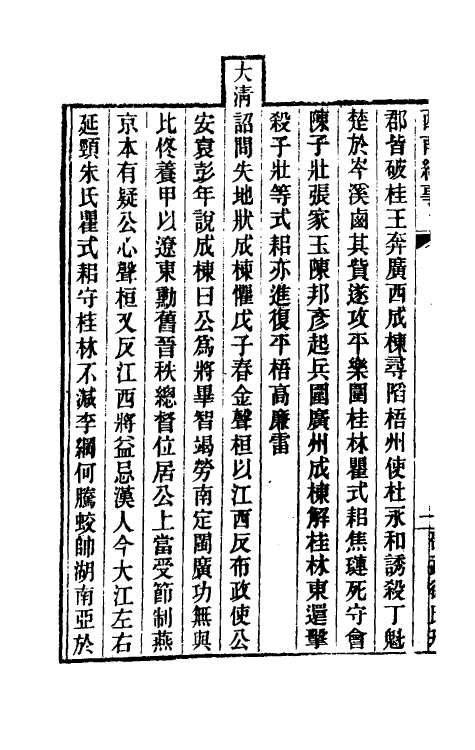 郡皆破桂王奔廣西成棟尋陷梧州使杜永和誘殺丁魁
楚於岑溪鹵其貲遂攻平樂圍桂林瞿式耜焦璉死守會
陳子壯張家玉陳邦彥起兵圍廣州成棟解桂林東還擊
殺子壯等式耜亦進復平梧高廉雷
大清
詔問失地狀成棟懼戊子春金聲桓以江西反布政使公
安袁彭年說成棟曰公為將畢智竭勞南定閩廣功無與
比佟養甲以遼東勳舊晉秩總督位居公上當受節制燕
京本有疑公心聲桓又反江西將益忌漢人今大江左右
延頸朱氏瞿式耜守桂林不減李綱何騰蛟帥湖南亞於